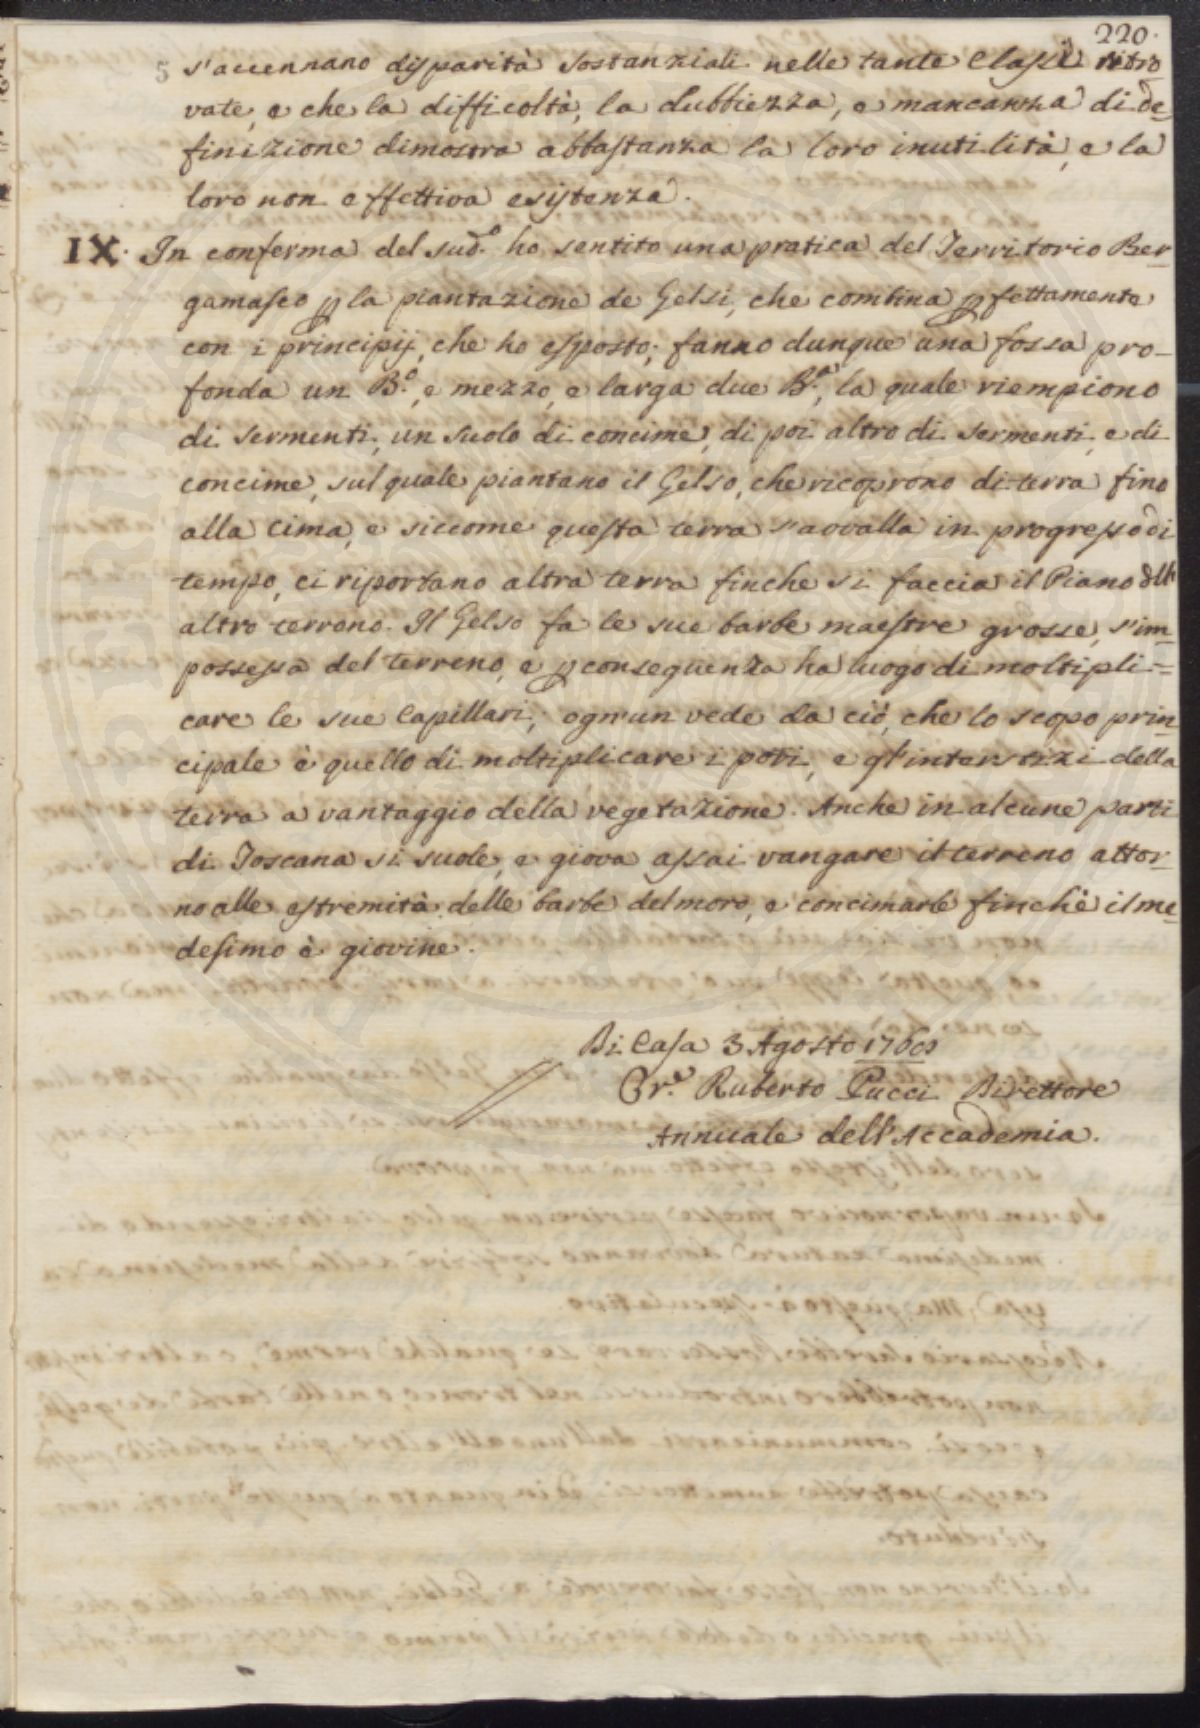 220.
5 s'accennano disparità sostanziali nelle tante Classi ritro
vate, e che la difficoltà, la dubbiezza, e mancanza di de=
finizione dimostra abbastanza la loro inutilità, e la
loro non effettiva esistenza.
IX. In conferma del sud.º ho sentito una pratica del Territorio Ber=
gamasco p la piantazione de Gelsi, che combina pfettamente
con i principij, che ho esposto; fanno dunque una fossa pro=
fonda un B.º, e mezzo, e larga due B.ª, la quale riempiono
di sermenti, un suolo di concime, di poi altro di sermenti, e di
concime, sul quale piantano il Gelso, che ricoprono di terra fino
alla cima, e siccome questa terra s'avvalla in progresso di
tempo, ci riportano altra terra finche si faccia il Piano dell'
altro terreno. Il Gelso fa le sue barbe maestre grosse, s'im=
possessa del terreno, e p conseguenza ha luogo di moltipli=
care le sue Capillari; ogn'un vede da ciò, che lo scopo prin=
cipale è quello di moltiplicare i pori, e gl'interstizi della
terra a vantaggio della vegetazione. Anche in alcune parti
di Toscana si suole, e giova assai vangare il terreno attor=
no alle estremità delle barbe del moro, e concimarle finchè il me=
desimo è giovine.
Di Casa 3 Agosto 1760
Ruberto Pucci Direttore
Annuale dell'Accademia.